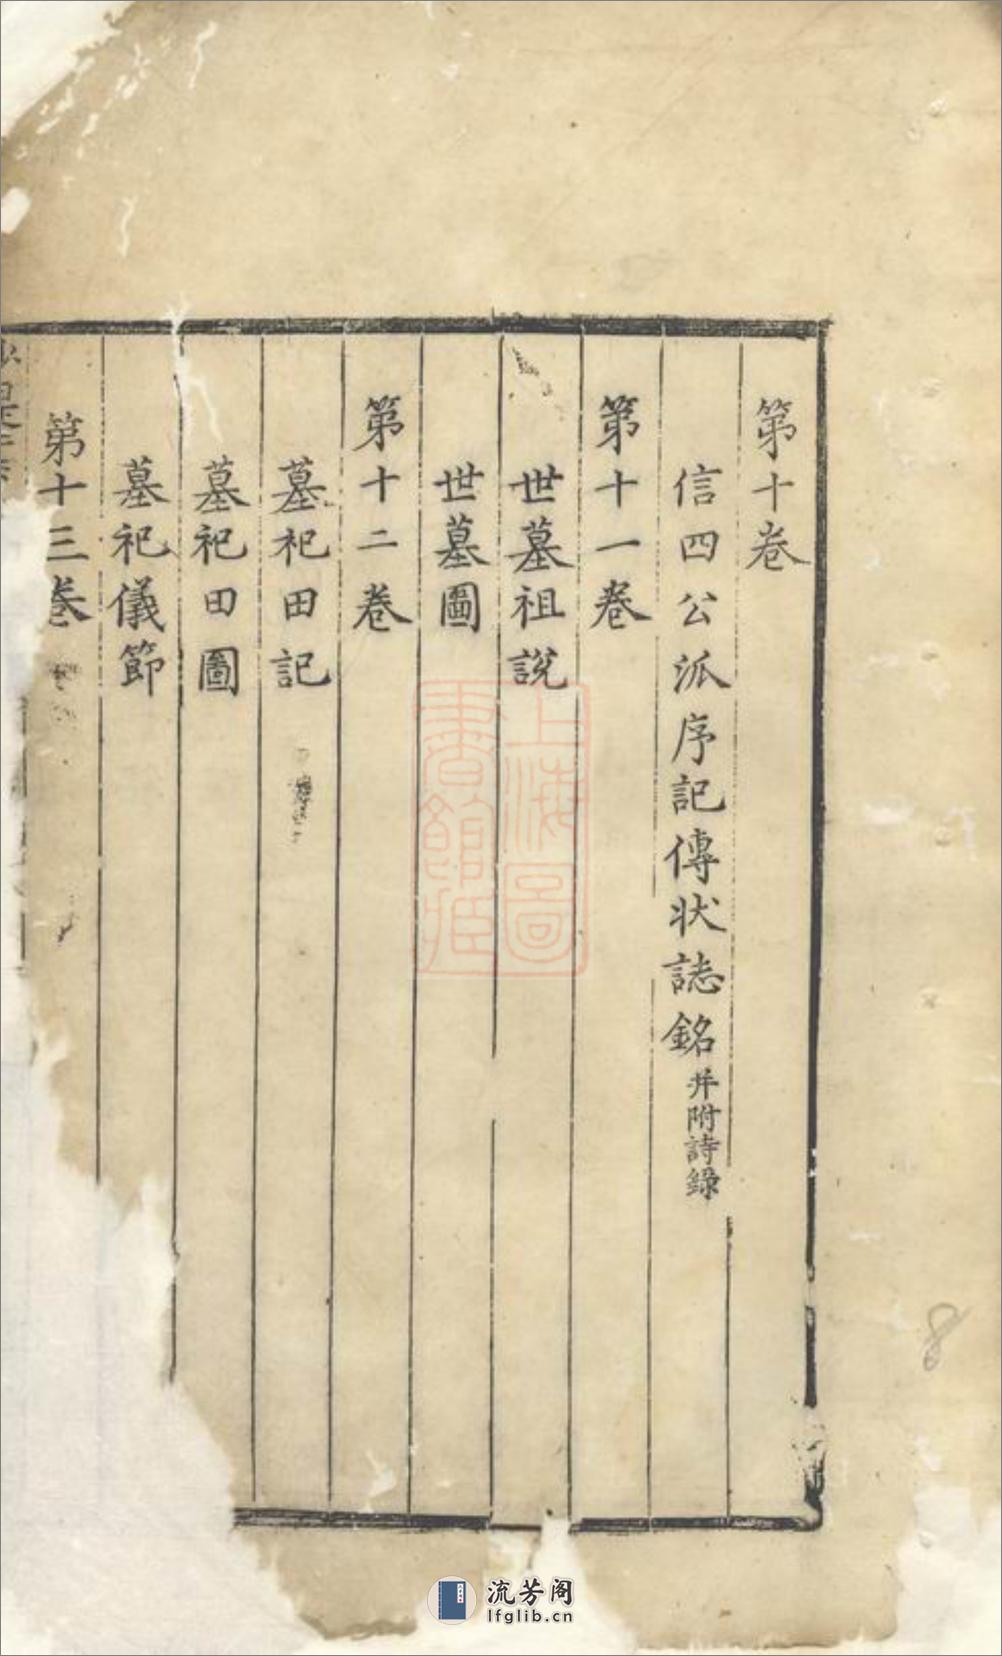 第十卷
信四公派序記傳狀誌銘并附詩錄
第十一卷
世墓祖說
世墓圖
第十二卷
墓祀田記
墓祀田圖
墓祀儀節
第十三卷
上海圖書館藏
8
流芳阁
lfglib.cn